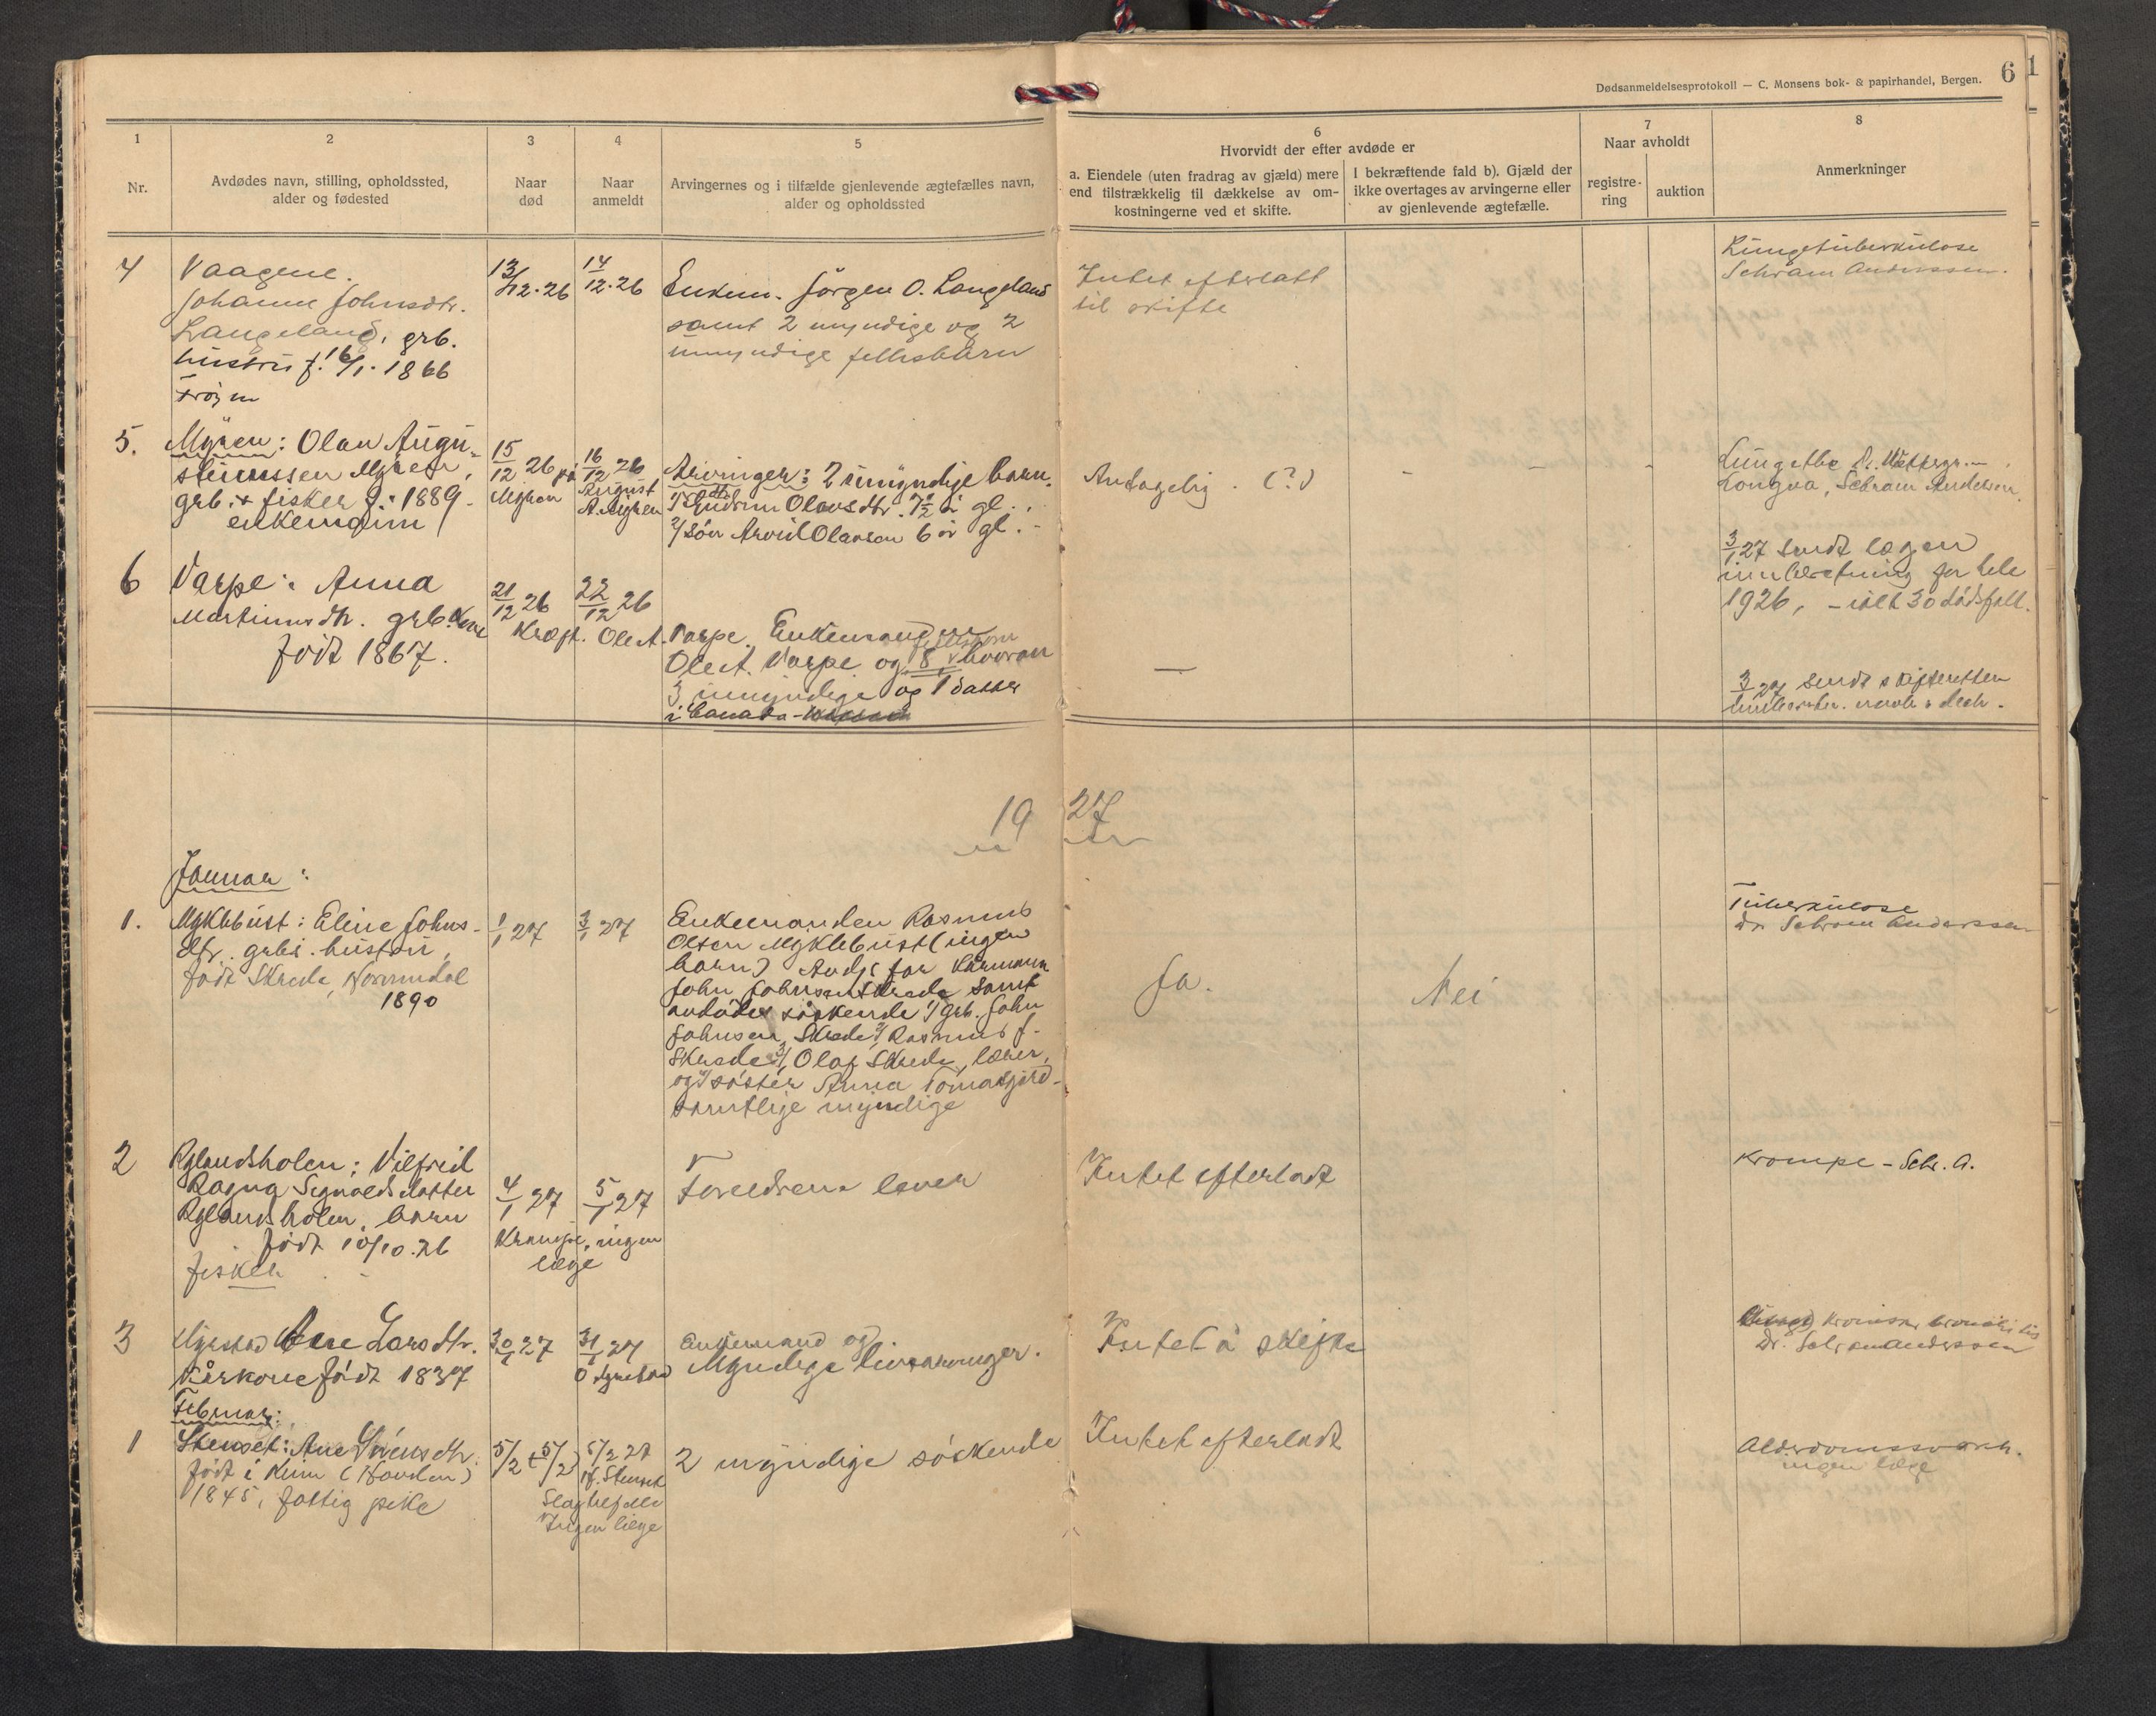 Dødsanmeldelsesprotokoll — C. Monsens bok- & papirhandel, Bergen.
6
1
1
2
3
4
5
6
7
8
Nr.
Avdødes navn, stilling, opholdssted,
alder og fødested
Naar
død
Naar
anmeldt
Arvingernes og i tilfælde gjenlevende ægtefælles navn,
alder og opholdssted
Hvorvidt der efter avdøde er
a. Eiendele (uten fradrag av gjæld) mere
end tilstrækkelig til dækkelse av om-
kostningerne ved et skifte.
I bekræftende fald b). Gjæld der
ikke overtages av arvingerne eller
av gjenlevende ægtefælle.
Naar avholdt
registre-
ring
auktion
Anmerkninger
4
Vaagene.
Johanne Johnsdtr.
Langeland, grb.
hustru f. 16/1. 1866
13/12.26
14/12.26
Enkem. Jörgen O. Langeland
samt 2 myndige og 2
umyndige fellesbarn
Intet efterlatt
til skifte
Lungetuberkulose
Schram Anderssen.
5.
Myren: Olav Augu-
stinussen Myren,
grb. & fisker f. 1889-
enkemann
15/12 26 på
Myren
16/12 26
August
A. Myren
Arvinger: 2 umyndige barn.
1/ Gudrun Olavsdtr. 7½ år gl.
2/ Sön Arvid Olavsen 6 år gl.
Antagelig. (?)
-
-
-
Longva, Schram Andersen
6
Varpe: Anna
Martinusdtr. grb. kone
född 1867.
21/12 26
22/12 26
Kreft. Ole A. Varpe.
Enkemanden
Ole A. Varpe og 8 fellesbarn hvorav
3 umyndige og 1 datter
i Canada -
—
3/1 27 sendt lægen
innberetning for hele
1926, - ialt 30 dödsfall.
3/1 27 sendt skifteretten
19 27
Januar:
1.
Myklebust: Eline Johns-
dtr. grbr. hustru,
född Skrede, Normmdal
1890
1/1 27
3/1 27
Enkemanden Rasmus
Olsen Myklebust (ingen
barn) Avds far kårmann
John Johnsen Skrede samt
avdödes söskende 1/ grb. John
Johnsen Skrede 2/ Rasmus J.
Skrede 3/ Olaf Skrede, lærer,
og 4/ söster Anna Tomasgård-
samtlige myndige
Ja.
Nei
Tuberkulose
Dr Schram Anderssen
2
Rylandsholen: Vilfred
Ragna Sigvalds datter
Rylandsholen, barn
född 10/10.26
fisker
4/1 27
5/1 27
Krampe, ingen
læge
Foreldrene lever
Intet efterladt
Krampe - Schr. A.
3
Ane Larsdtr.
kårkone född 1837
30/1 27
31/1 27
Enkemand og
Myndige livsarvinger.
Intet å skifte
Dr. Schram Anderssen
Februar:
1
Stenset: Ane
född i Kinn (Hovden)
1845, fattig pike
5/2 (5/2)
5/2 27
Stenset
Slagtilfelle
Ingen læge
2 myndige söskende
Intet efterladt
Alderdomssvakh.
ingen læge